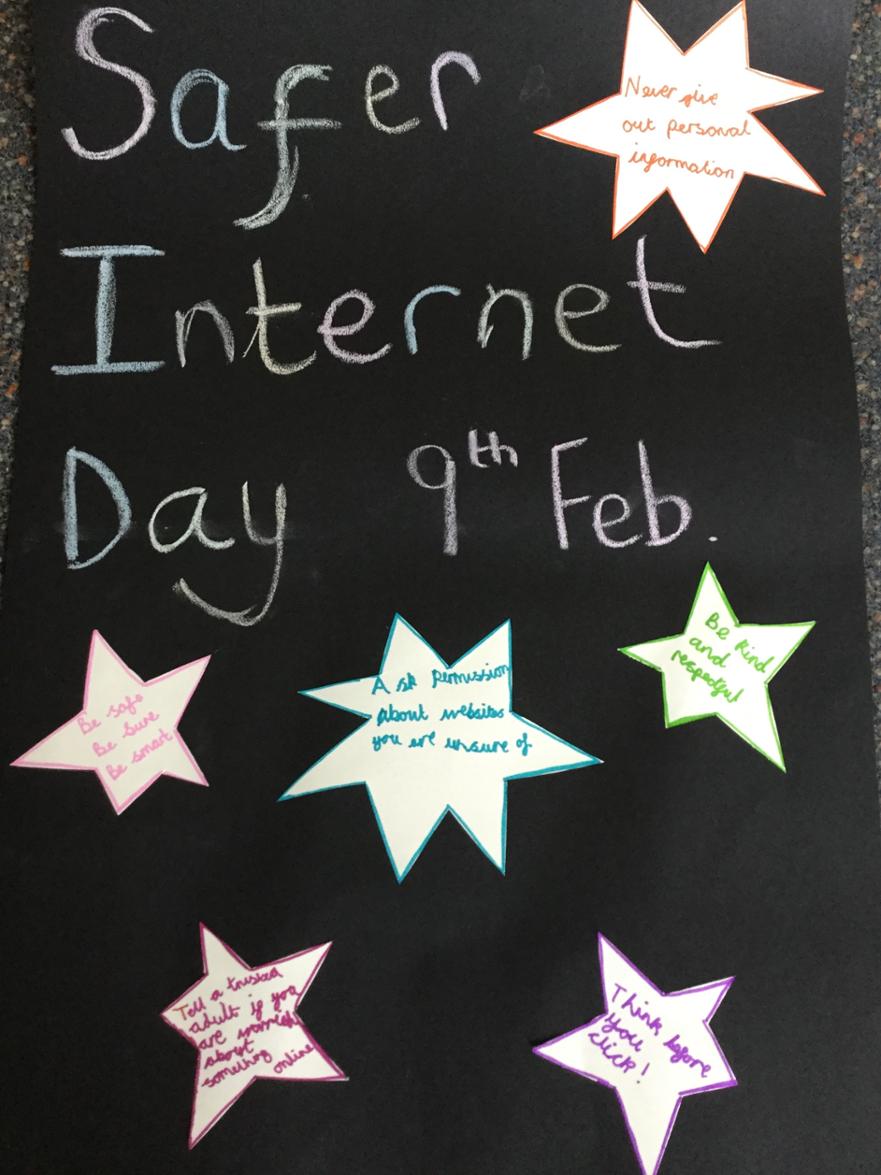 Safer
Never give
out personal
information
Internet
Day 9th Feb.
Be safe
Be sure
Be smart
Ask permission
about websites
you are unsure of
Be kind
and
respectful
Tell a trusted
adult if you
are worried
about
something online
Think before
you
click!